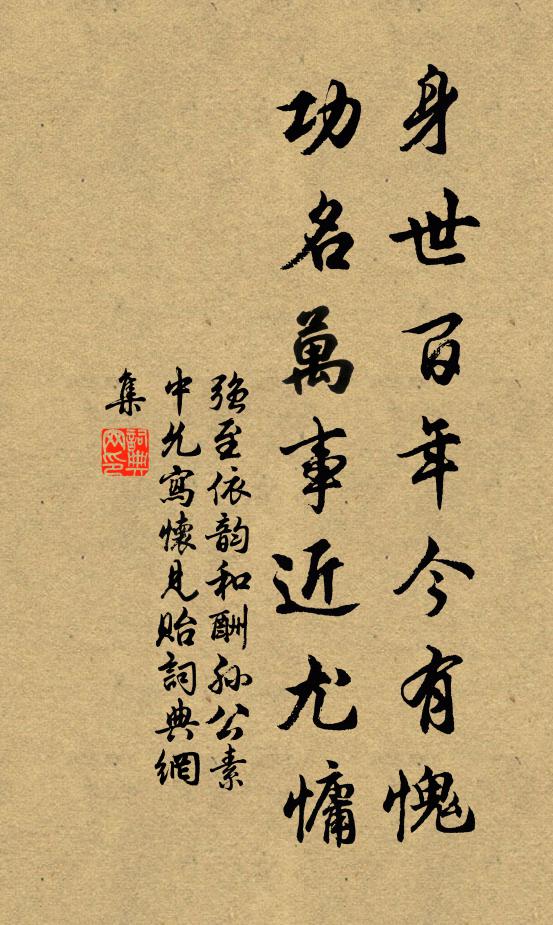 身世百年今有愧
功名萬事近尤慵
强至依韵和酬孙公素
中允寫懷見貽詞典網
集
詞典网印